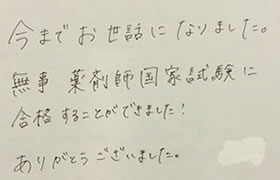 今までお世話になりました。
無事 薬剤師国家試験に
合格することができました!
ありがとうございました。